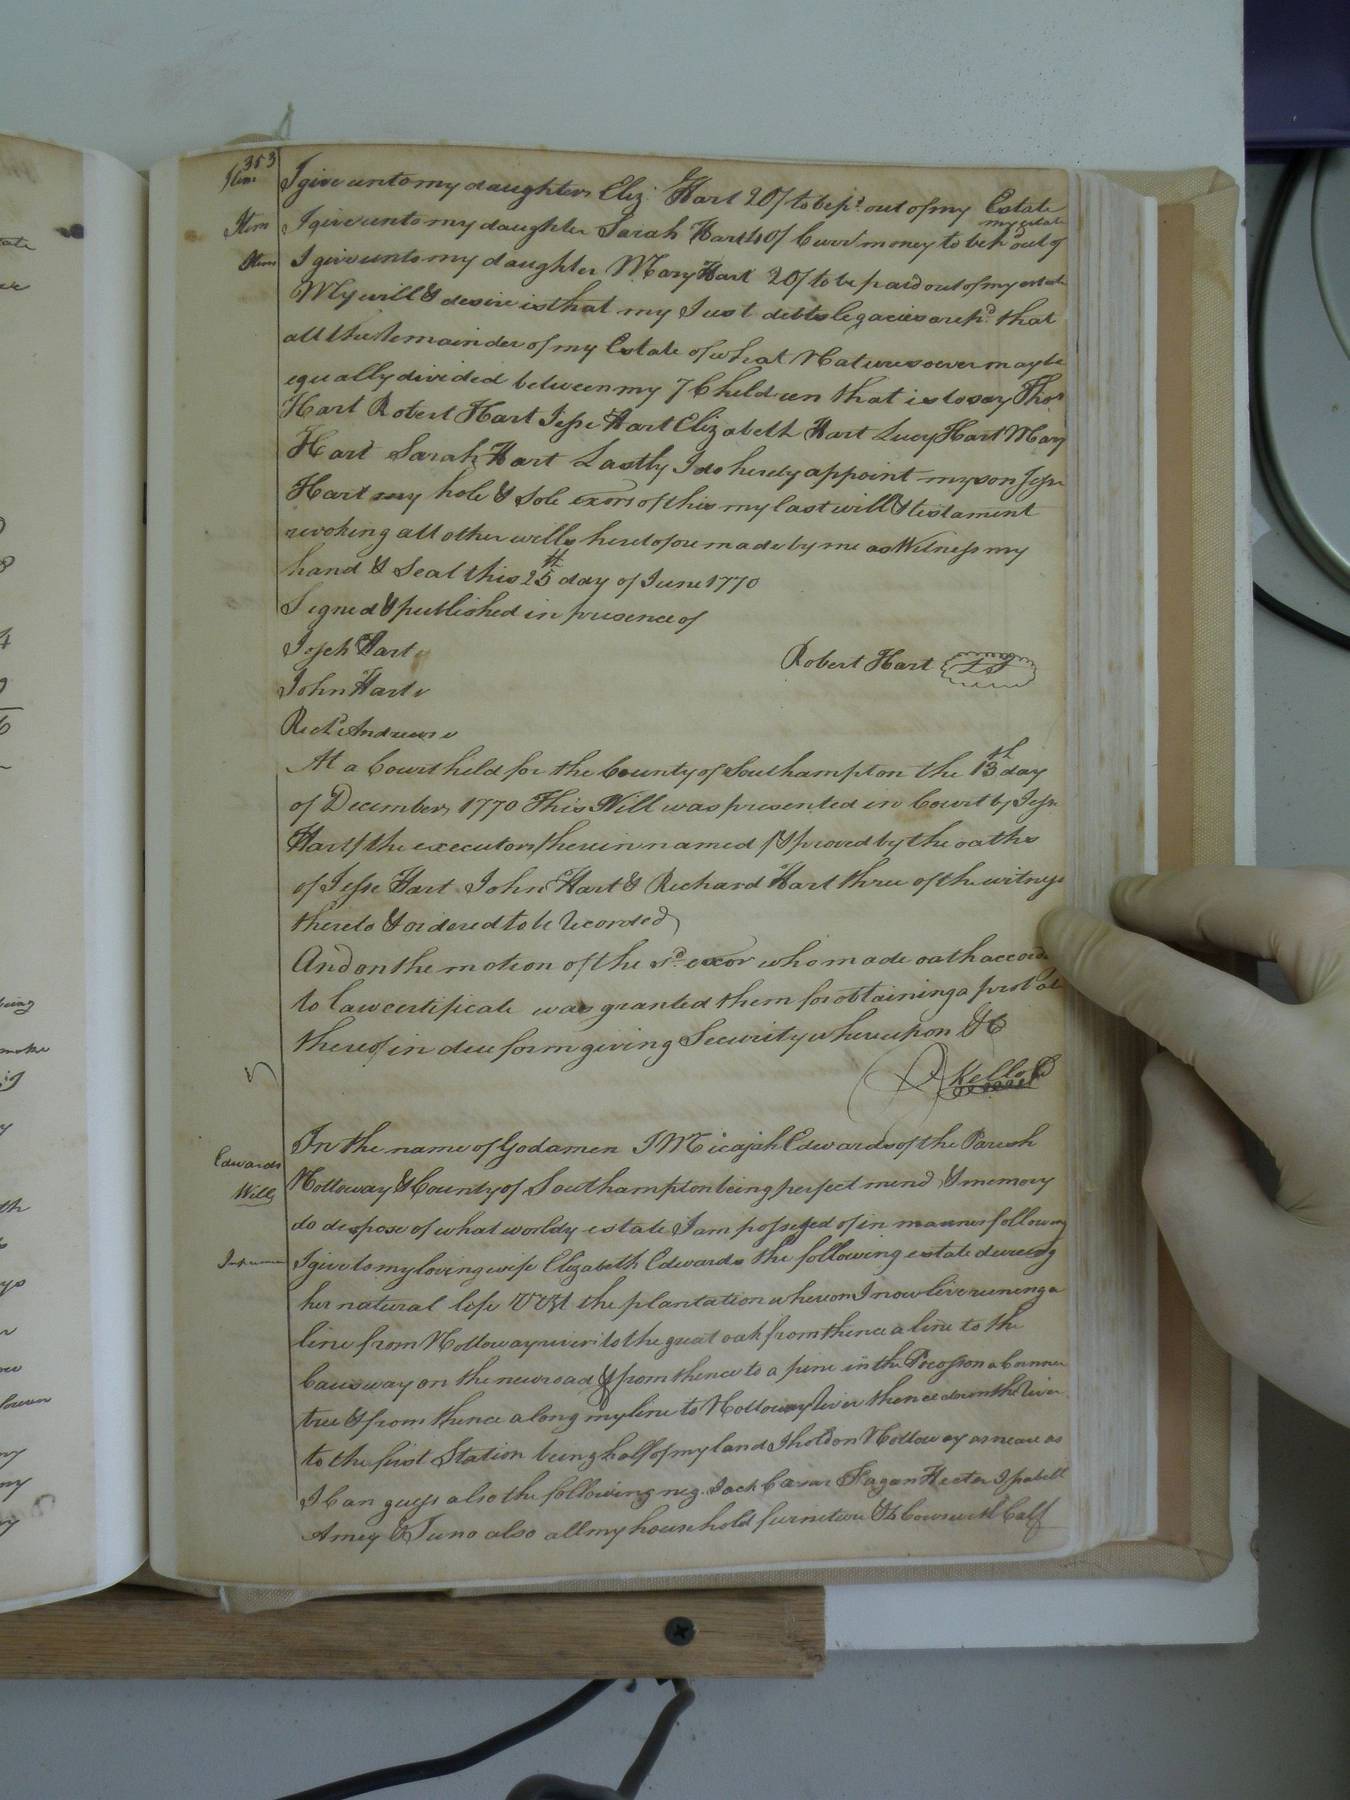 353
Item I give unto my daughter Eliz. Hart 20/ to be pd. out of my Estate
Item I give unto my daughter Sarah Hart 40/ of Curr money to be pd out of my estate
Item I give unto my daughter Mary Hart 20/ to be paid out of my estate
My will & desire is that my Just debts legacies are pd. that
all the Remainder of my Estate of what Nature soever may be
equally divided between my 7 Children that is to say Thos
Hart Robert Hart Jesse Hart Elizabeth Hart Lucy Hart Mary
Hart Sarah Hart Lastly I do hereby appoint my son Jesse
Hart my hole & Sole exors of this my last will & testament
revoking all other wills heretofore made by me as Witness my
hand & Seal this 25th day of June 1770
Signed & published in presence of
Joseh Hart
Robert Hart LS
John Hart
Richd Andrews
At a Court held for the County of Southampton the 13th day
of December 1770 This Will was presented in Court by Jesse
Hart the executor therein named & proved by the oaths
of Jesse Hart John Hart & Richard Hart three of the witness
thereto & ordered to be Recorded
And on the motion of the sd. exor who made oath accord
to law certificate was granted them for obtaining a probat
thereof in due form giving Security whereupon &C
Kello
Edwards Will
In the name of God amen I Micajah Edwards of the Parish
Nottoway & County of Southampton being perfect mind & memory
do despose of what worldy estate I am possessed of in manner following
I give to my loving wife Elizabeth Edwards the following estate dureing
her natural life Vizt the plantation whereon I now live runing a
line from Nottoway river to the great oak from thence a line to the
Causway on the new road & from thence to a pine in the Pocosson a Corner
tree & from thence along my line to Nottoway River thence down the River
to the first Station being half of my land I hold on Nottoway as neare as
I Can guess also the following neg. Jack Caesar Hagan Hector Isabell
Amey & Juno also all my household furniture & Cows with Calf